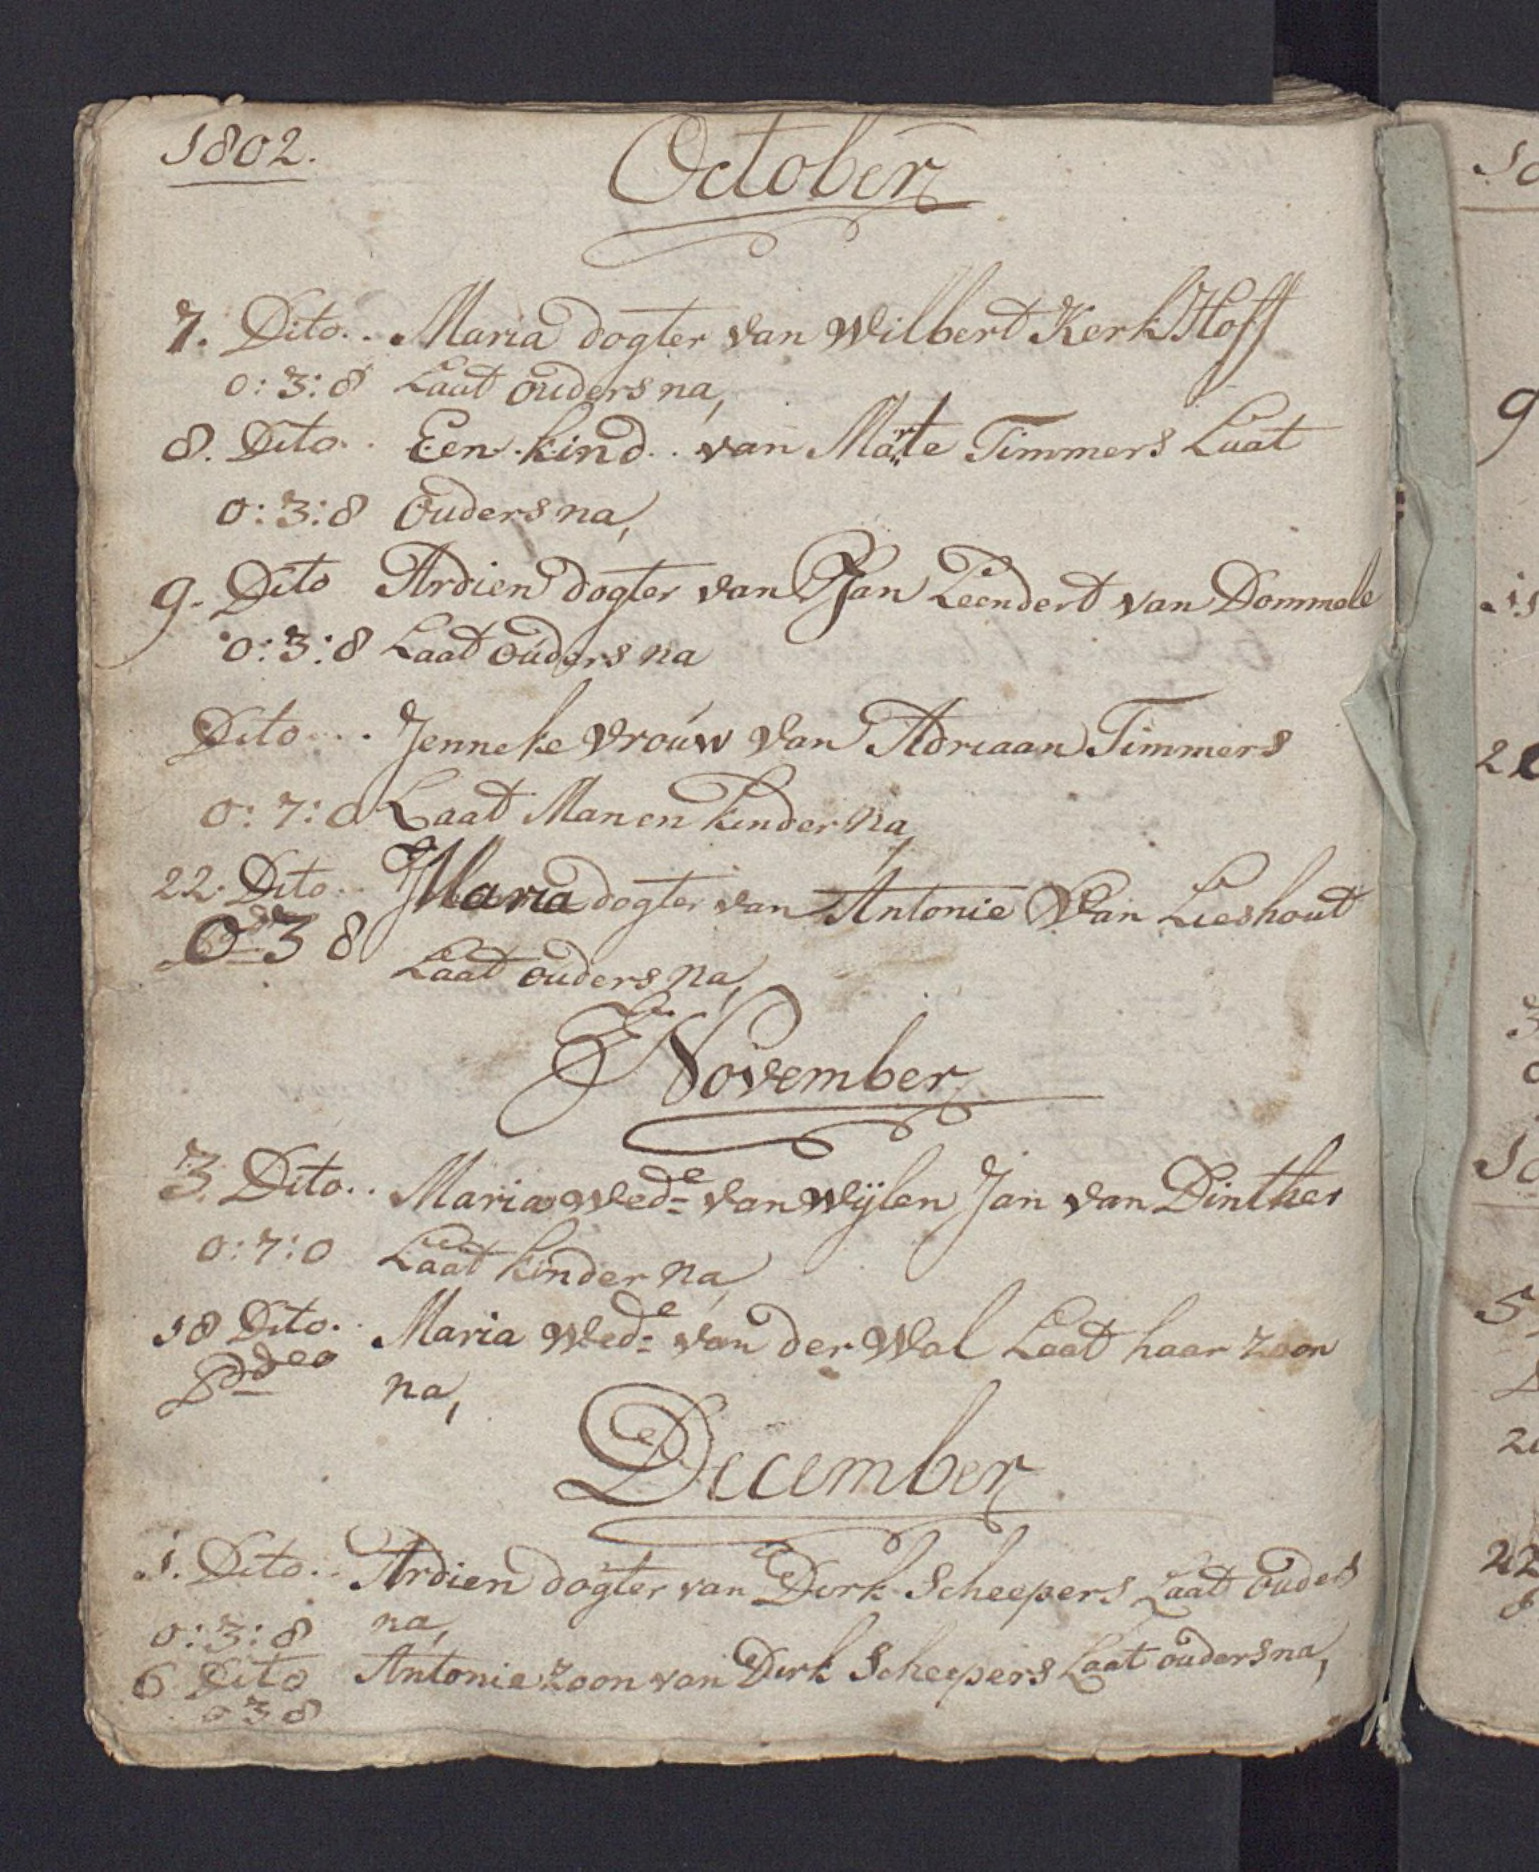 1802.
October
7. Dito... Maria dogter van Wilbert KerkHoff
0:3:8 Laat ouders na,
8. Dito.. Een kind.. van Marte Timmers Laat
0:3:8 Ouders na,
9. Dito Ardien dogter van Jan Leendert van Dommele
0:3:8 Laat ouders na
Dito... Jenneke vrouw van Adriaan Timmers
0:7:0 Laat Man en kinder na,
22. Dito.. Maria dogter van Antonie Van Lieshout
0 3 8
Laat ouders na,
November
3. Dito.. Maria Wede van Wijlen Jan van Dinther
0:7:0 Laat kinder na,
18 Dito. Maria Wede van der Wal Laat haar zoon
na,
December
1. Dito.. Ardien dogter van Dirk Scheepers Laat ouders
0:3:8 na,
6 Dito Antonie zoon van Dirk Scheepers Laat ouders na,
0 3 8
9
22